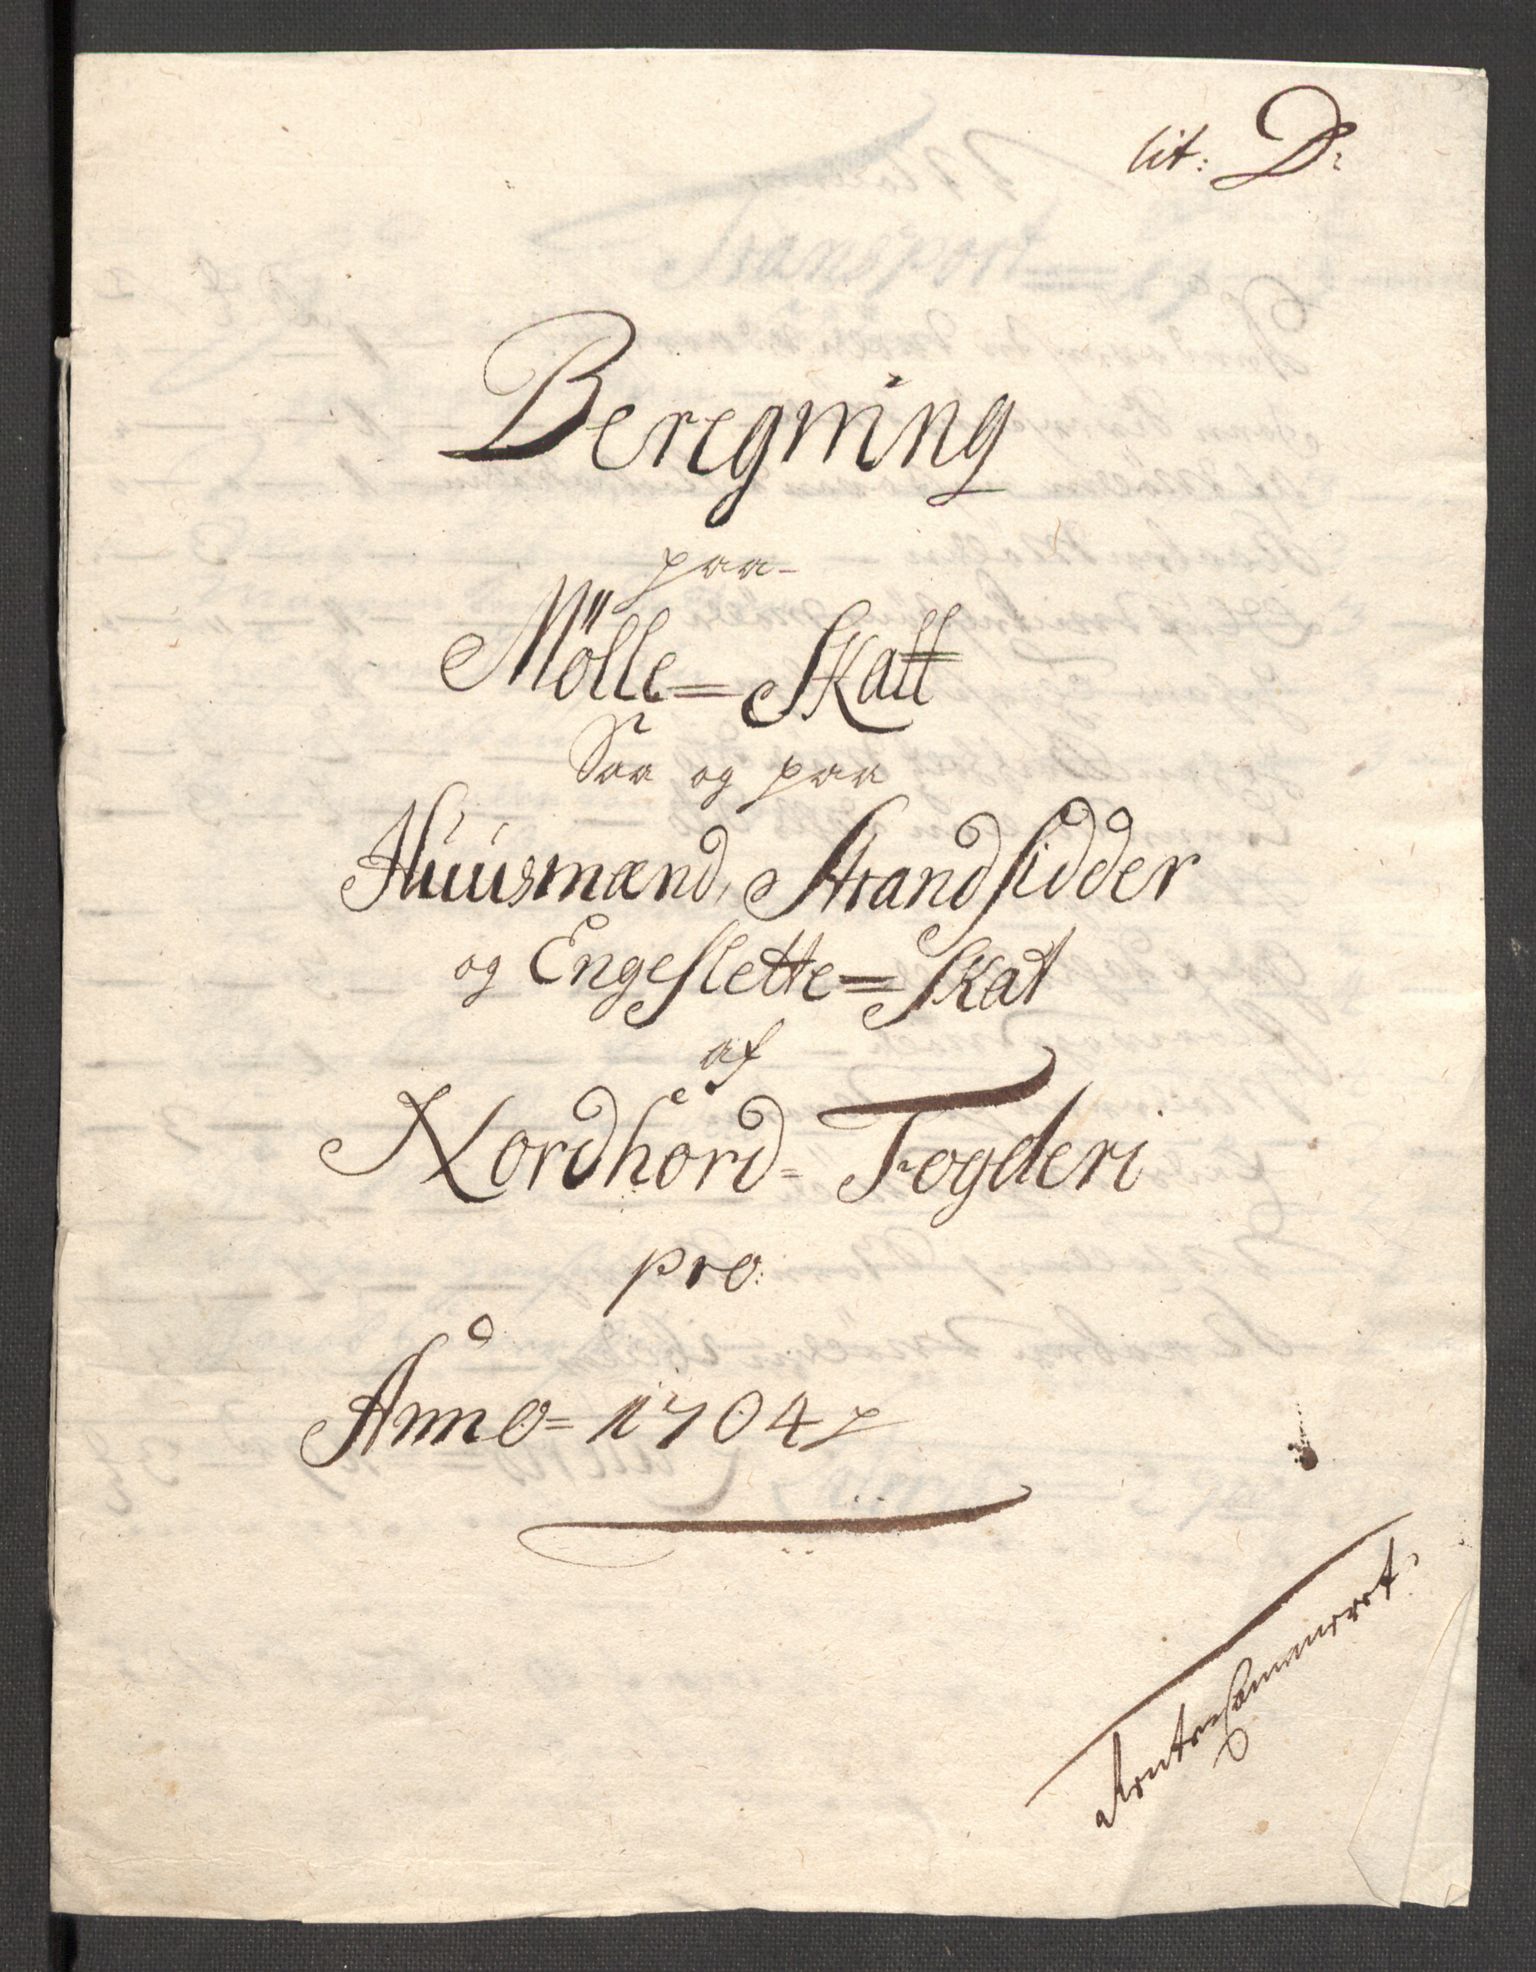 lit: D:
Beregning
paa
Mölle = Skatt
Saa og paa
Huusmænd, Strandsidder
og Engeslette = Skat
af
Nordhord = Fogderi
pro:
Anno = 1704
RenteCammeret: